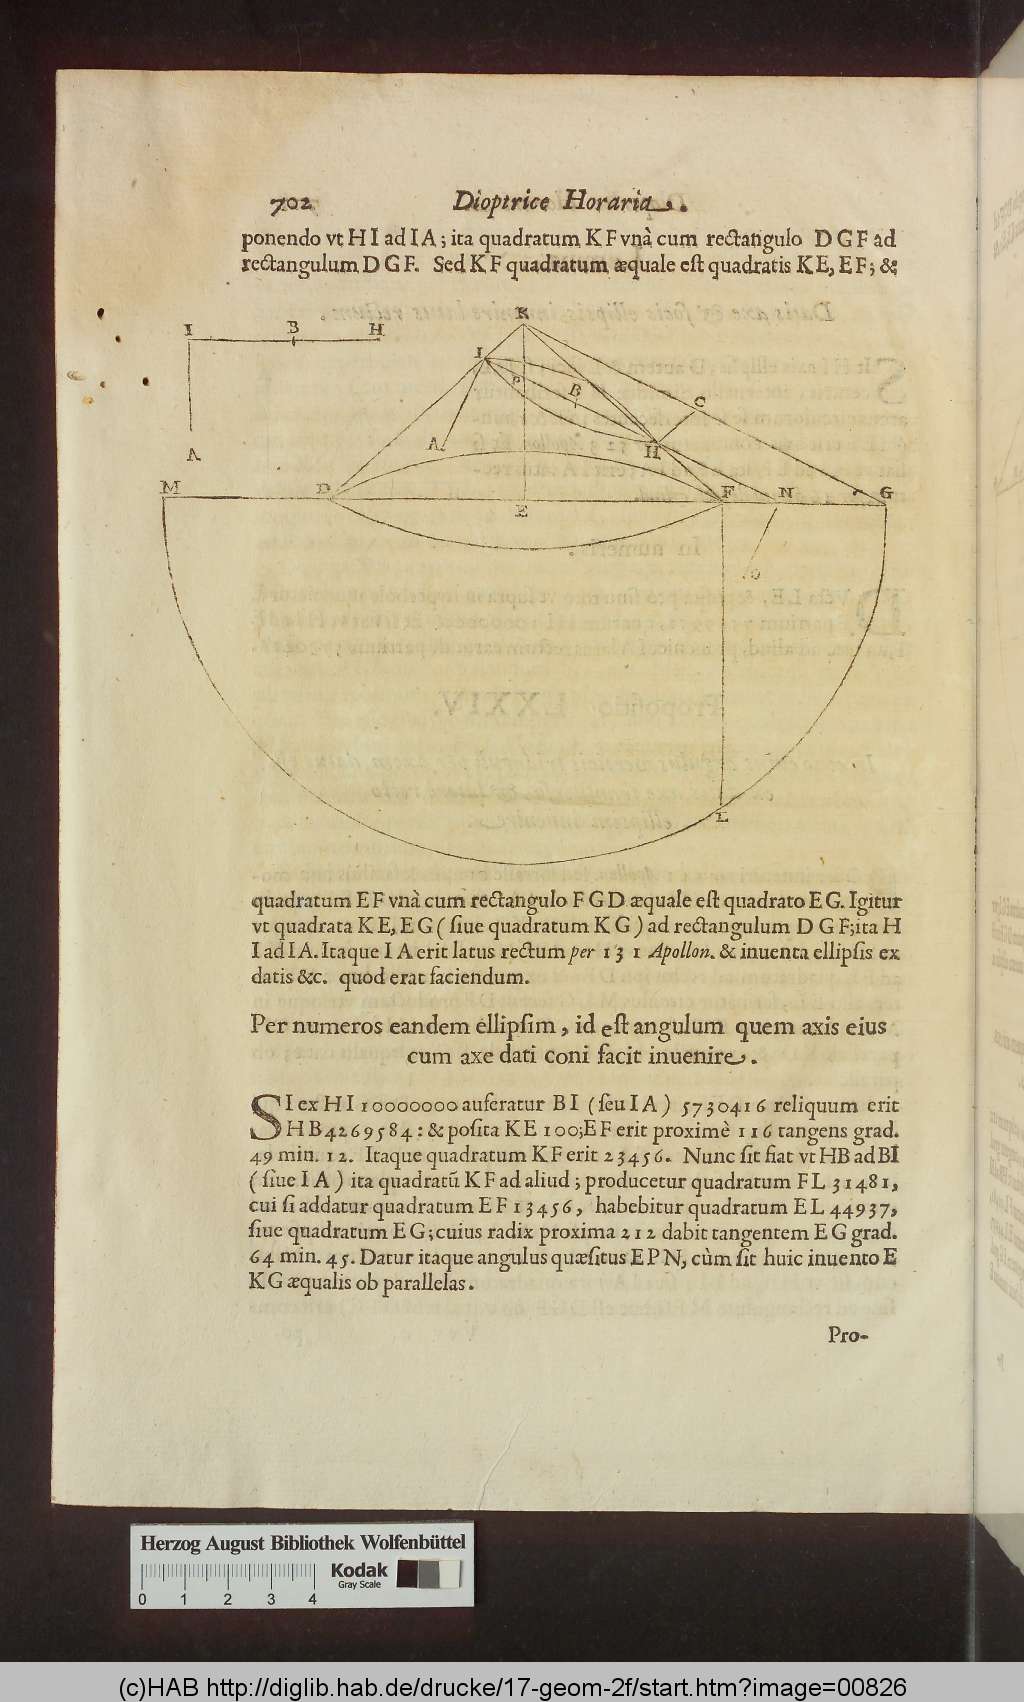 702 Dioptrice Horaria.
ponendo vt H I ad I A; ita quadratum K F vnà cum rectangulo D G F ad
rectangulum D G F. Sed K F quadratum æquale est quadratis K E, E F; &
K
I B H
I
P
B
C
A
A
H
M D E F N G
O
L
quadratum E F vnà cum rectangulo F G D æquale est quadrato E G. Igitur
vt quadrata K E, E G ( siue quadratum K G ) ad rectangulum D G F; ita H
I ad I A. Itaque I A erit latus rectum per 131 Apollon. & inuenta ellipsis ex
datis &c. quod erat faciendum.
Per numeros eandem ellipsim, id est angulum quem axis eius
cum axe dati coni facit inuenire.
SI ex H I 10000000 auferatur B I ( seu I A ) 5730416 reliquum erit
H B 4269584: & posita K E 100; E F erit proximè 116 tangens grad.
49 min. 12. Itaque quadratum K F erit 23456. Nunc sit fiat vt HB ad BI
( siue I A ) ita quadratū K F ad aliud; producetur quadratum F L 31481,
cui si addatur quadratum E F 13456, habebitur quadratum E L 44937,
siue quadratum E G; cuius radix proxima 212 dabit tangentem E G grad.
64 min. 45. Datur itaque angulus quæsitus E P N, cùm sit huic inuento E
K G æqualis ob parallelas.
Pro-
Herzog August Bibliothek Wolfenbüttel
Kodak
Gray Scale
0 1 2 3 4
(c)HAB http://diglib.hab.de/drucke/17-geom-2f/start.htm?image=00826